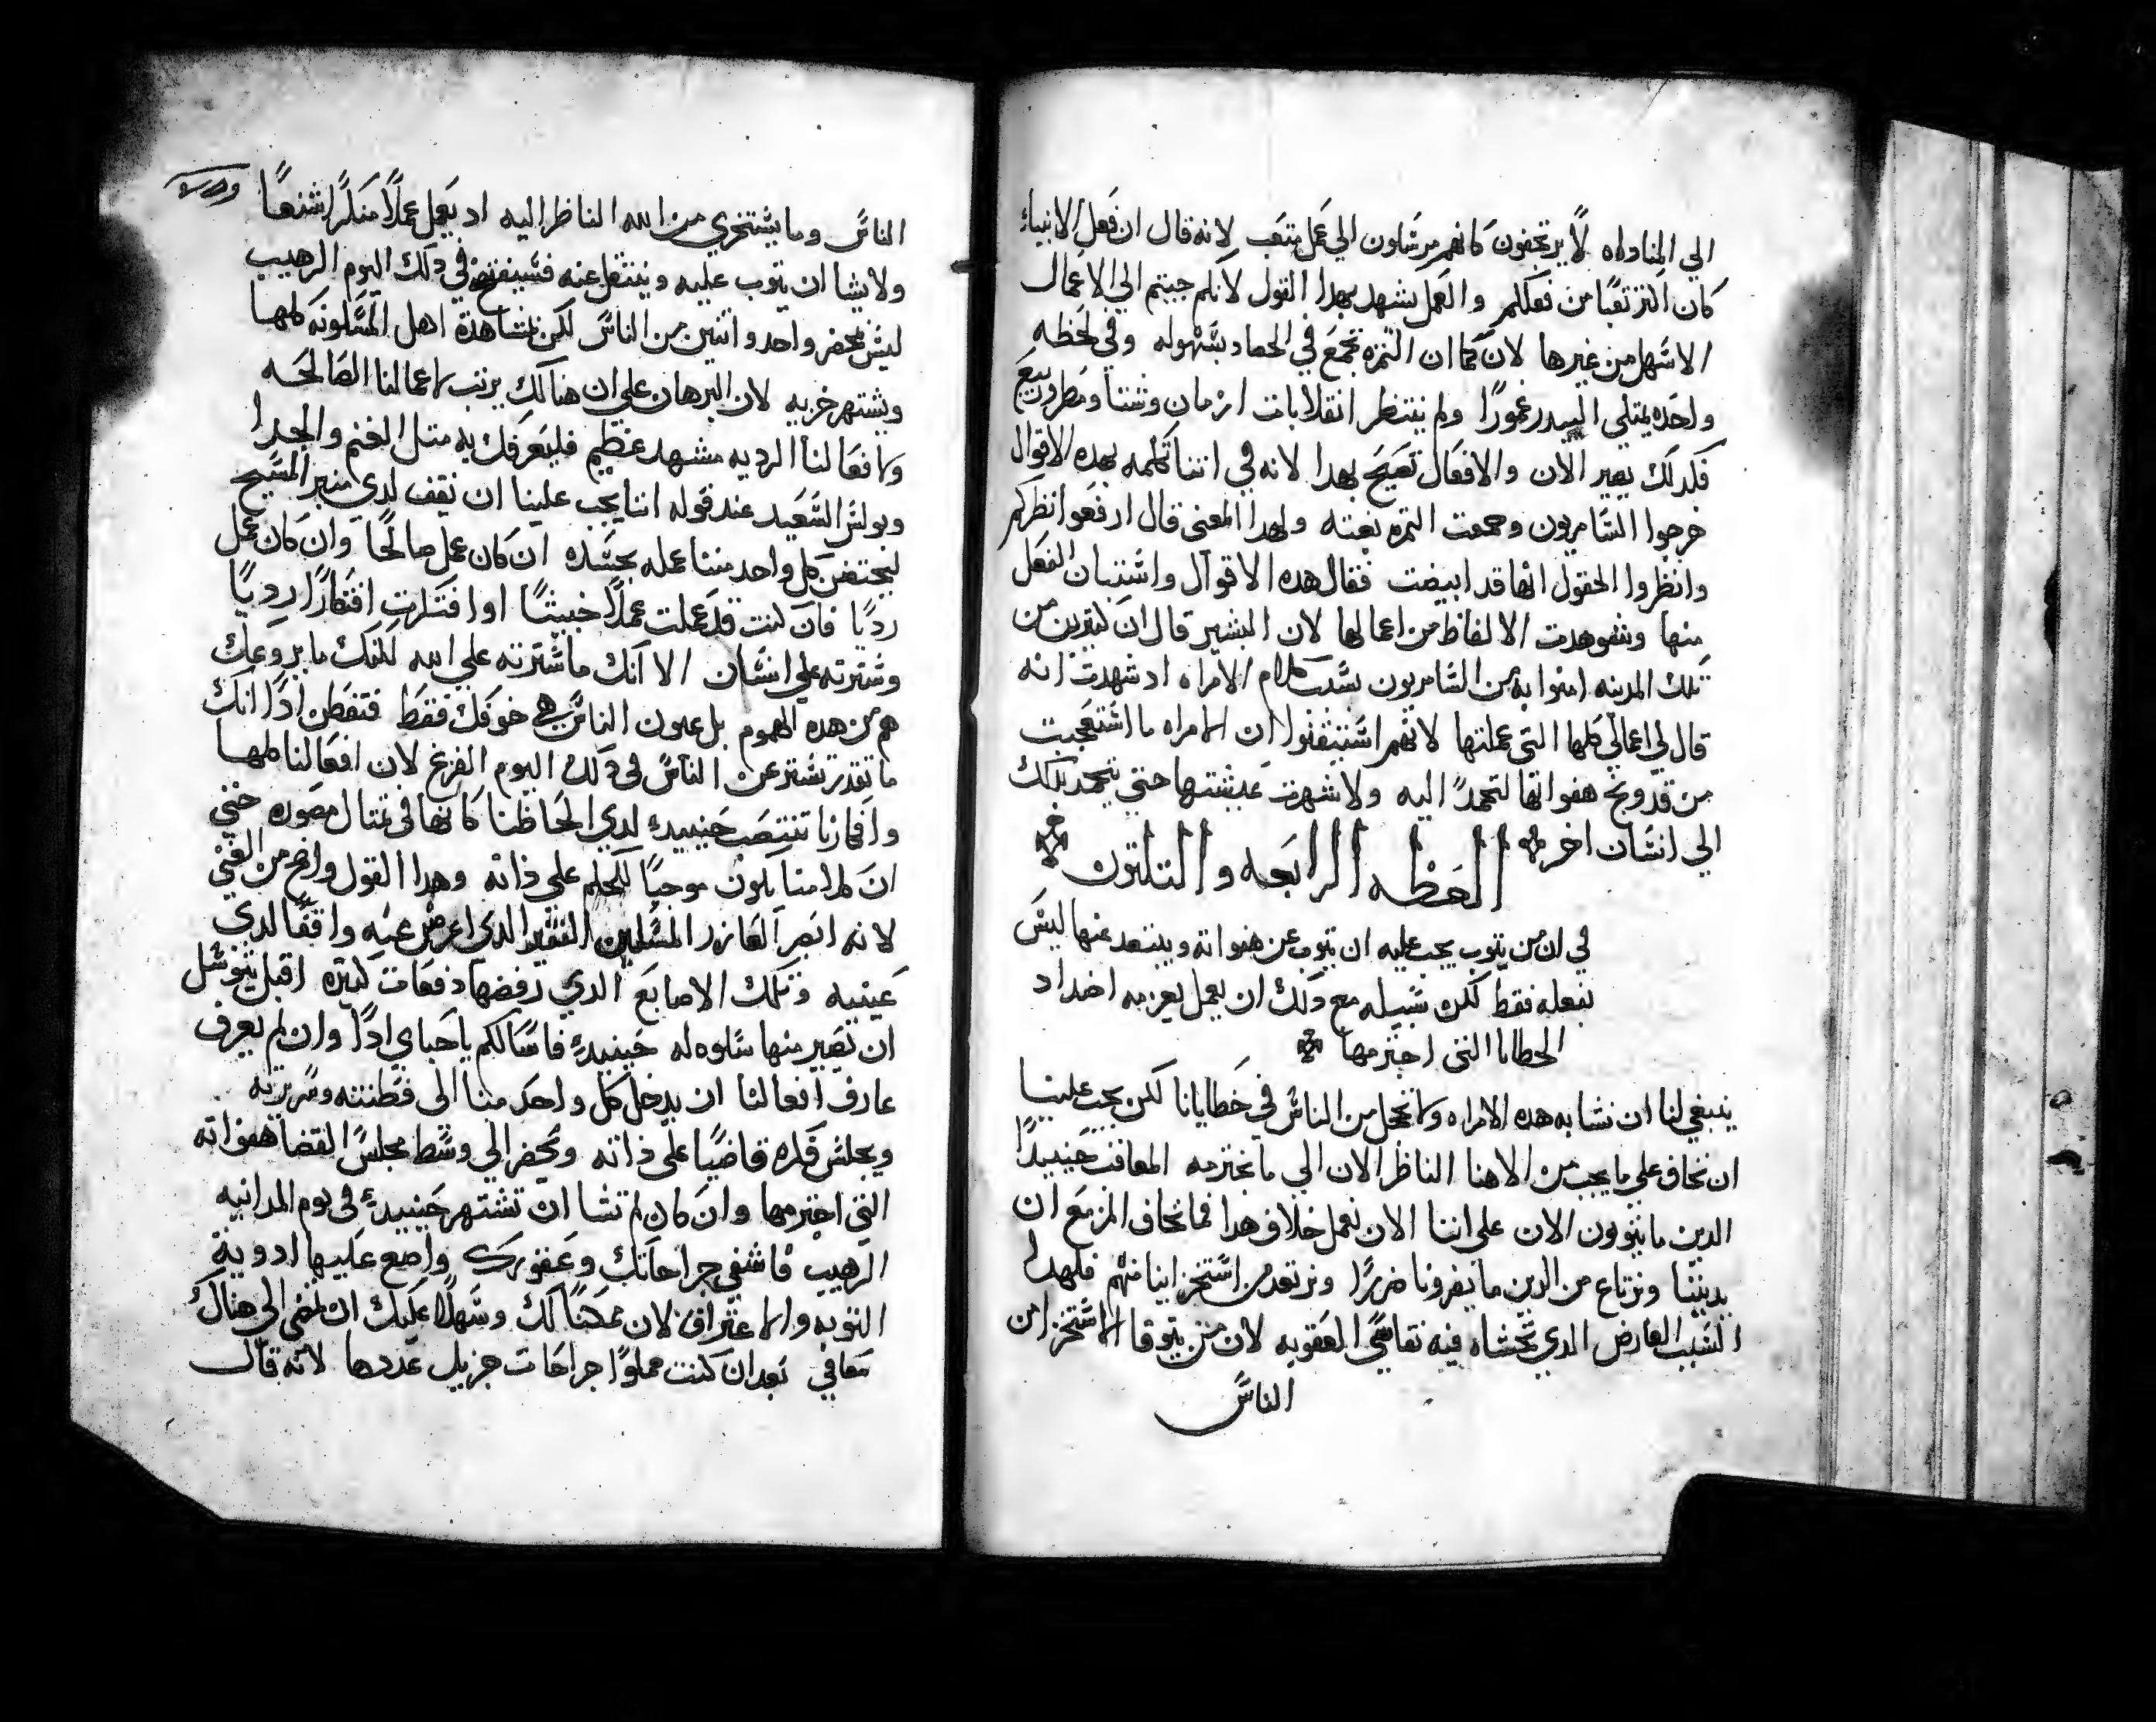 الي المناداه لا يرتجفون كانهم مرسلون الي عمل متعب لانه قال ان فعل الانبياء
كان اكتر تعبًا من فعلكم والعمل يشهد بهدا القول لانكم جيتم الي الاعمال
الاسهل من غيرها لان كما ان التمره تجمع في الحصاد بسهوله وفي لحظه
واحده يمتلي البيدر غمورًا ولم ينتظر انقلابات ازمان وشتا ومطر وربيع
فكدلك يصير الان والافعال تصيح بهدا لانه في اتنا تكلمه بهده الاقوال
خرجوا السامريون وجمعت التمره بغته ولهدا المعني قال ارفعوا نظركم
وانظروا الحقول انها قد ابيضت فقال هده الاقوال واستبان الفعل
منها وشوهدت الالفاظ من اعمالها لان البشير قال ان كتيرين من
تلك المدينه امنوا به من السامريون بسبب كلام الامراه اد شهدت انه
قال لي اعمالي كلها التي عملتها لانهم استيقنوا ان الامراه ما استعجبت
من قد وبخ هفواتها لتحمد اليه ولا شهرت عيشتها حتي تحمد بدلك
الي انسان اخر
العظه الرابعه والتلتون
في ان من يتوب يجب عليه ان يتوب عن هفواته ويبتعد عنها ليس
بفعله فقط لكن سبيله مع دلك ان يعمل بعزمه اضداد
الخطايا التي اجترمها
ينبغي لنا ان نشابه هده الامراه ولا نخجل من الناس في خطايانا لكن يجب علينا
ان نخاف علي ما يجب من الاهنا الناظر الان الي ما نجترمه المعاقب حينيدًا
الدين ما يتوبون الان علي اننا الان نعمل خلاف هدا فما نخاف المزمع ان
يديننا ونرتاع من الدين ما يضرونا ضررًا ونرتعد من استخزاينا منهم فلهدا
السبب العارض الدي نخشاه فيه نقاسي العقوبه لان من يتوقا الاستخزا من
الناس
الناس وما يستخزي من الله الناظر اليه اد يعمل عملًا منكرًا شنعًا
ولا يشا ان يتوب عليه وينتقل عنه فسيفتضح في دلك اليوم الرهيب
ليس بمحضر واحد واتنين من الناس لكن بمشاهدة اهل المسكونه كلها
ويشتهر خزيه لان البرهان علي ان هنالك يرتب لاعمالنا الصالحه
ولافعالنا الرديه مشهد عظيم فليعرفك به متل الغنم والجدا
وبولس السعيد عند قوله اننا يجب علينا ان نقف لدي منبر المسيح
ليجتضن كل واحد منا عمله بجسده ان كان عمل صالحًا وان كان عمل
رديًا فان كنت قد عملت عملًا خبيتًا او افتكرت افتكارًا رديًا
وسترته علي انسان الا انك ما سترته علي الله لكنك ما يروعك
هم من هده الهموم بل عيون الناس هي خوفك فقط فتفطن ادًا انك
ما تقدر تستتر عن الناس في دلك اليوم الفزع لان افعالنا كلها
وافكارنا تنتصب حينيدٍ لدي الحاظنا كانها في تمتال مصوره حتي
ان كلا منا يكون موجبًا للحكم علي ذاته وهدا القول واضح من الغني
لانه ابصر العازر المسكين الفقير الدي اعرض عنه واقفًا لدي
عينيه وتلك الاصابع الدي رفضها دفعات كتيره اقبل يتوسل
ان تصير منها سلوه له حينيدٍ فاسالكم ياحباي ادًا وان لم يعرف
عارف افعالنا ان يدخل كل واحد منا الي فطنته وسريرته
ويجلس فكره قاضيًا علي ذاته ويحضر الي وسط مجلس القضا هفواته
التي اجترمها وان كان لم تشا ان تشتهر حينيدٍ في يوم المدانيه
الرهيب فاشفي جراحاتك وعقورك واضع عليها ادوية
التوبه والاعتراف لان ممكنًا لك وسهلًا عليك ان تمضي الي هناك
معافي بعد ان كنت مملوًا جراحات جزيل عددها لانه قال